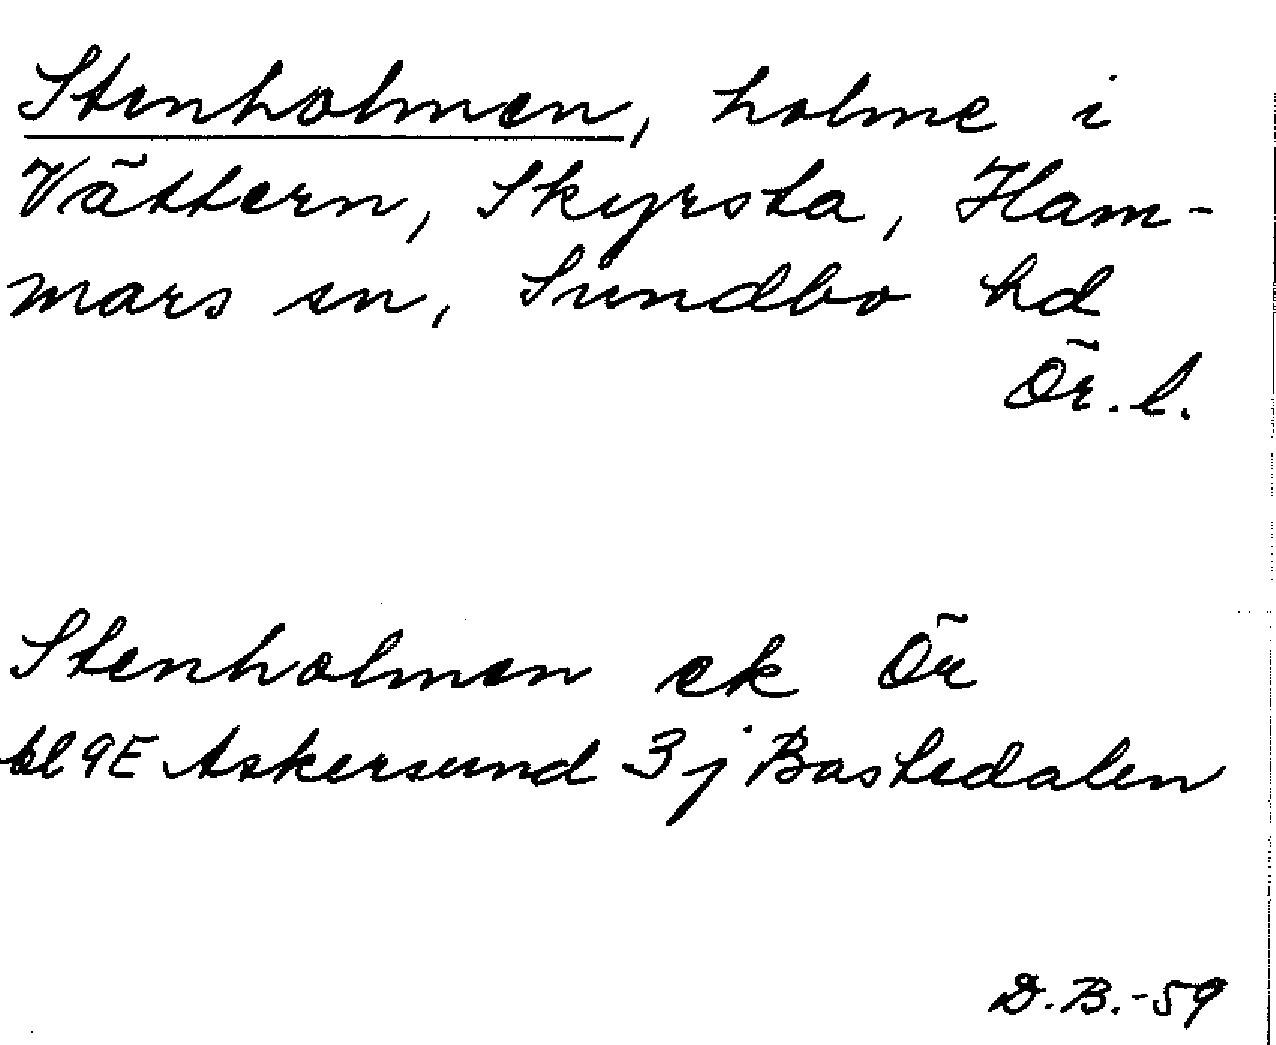 Stenholmen, holme i
Vättern, Skyrsta, Ham-
mars sn, Sundbo hd
Ör. l.
Stenholmen ek Ör
bl 9E Askersund 3j Bastedalen
D.B.-59